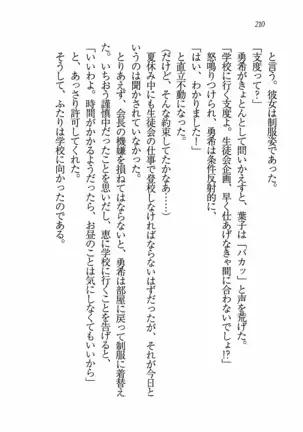 210
と言う。彼女は制服姿であった。
「支度って？」
勇希がきょとんとして問いかえすと、葉子は「バカッ」と声を荒げた。
「学校に行く支度よ。生徒会企画、早く仕あげなきゃ間に合わないでしょ!?」
怒鳴りつけられ、勇希は条件反射的に、
「はい、わかりました！」
と直立不動になった。
（だけど、そんな約束してたかなあ……）
夏休み中にも生徒会の仕事で登校しなければならないはずだったが、それが今日と
いうのは聞かされていなかった。
とりあえず、会長の機嫌を損ねてはならないと、勇希は部屋に戻って制服に着替え
た。いちおう謹慎中だったことを思いだし、恵に学校に行くことを告げると、
「いいわよ。時間がかかるようだったら、お昼のことは気にしなくてもいいから」
と、あっさり許可してくれた。
そうして、ふたりは学校に向かったのである。